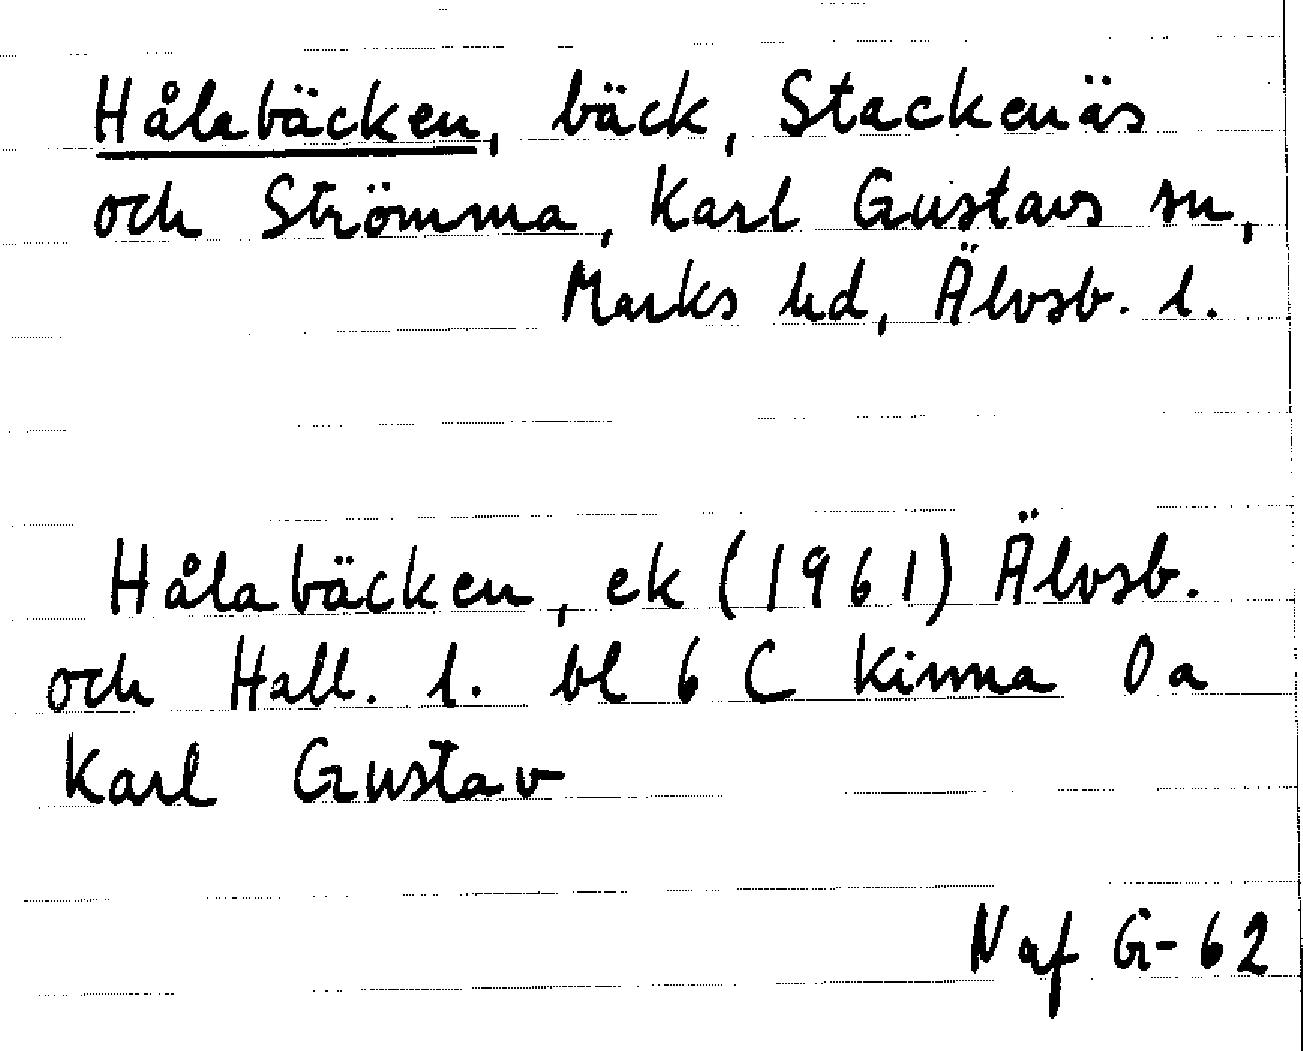 Hålabäcken, bäck, Stackenäs
och Strömma, Karl Gustavs sn,
Marks hd, Älvsb. l.
Hålabäcken, ek (1961) Älvsb.
och Hall. l. bl 6 C Kinna 0 a
Karl Gustav
N af G-62